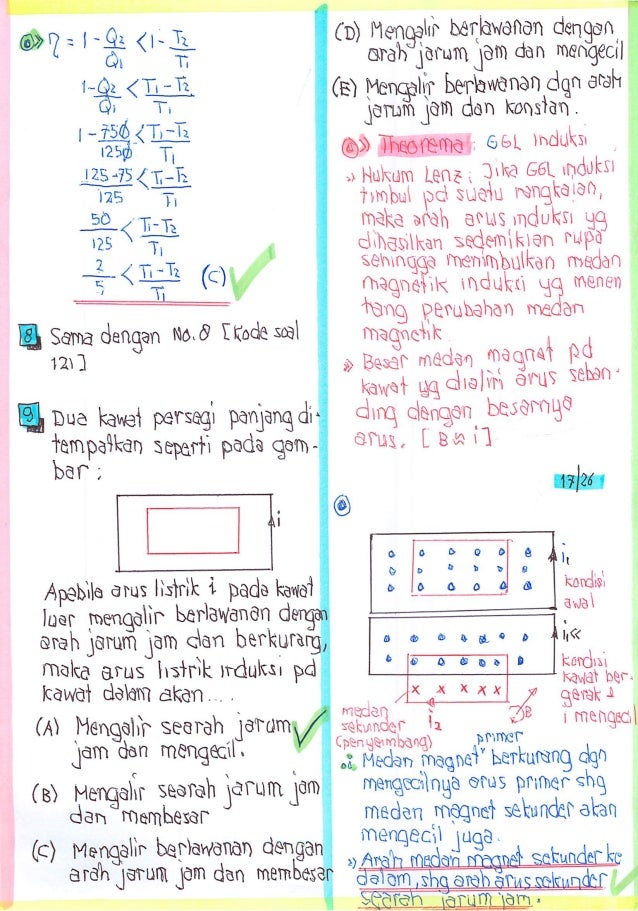 η = 1 - Q2/Q1 < 1 - T2/T1
1 - Q2/Q1 < T1-T2/T1
1 - 750/1250 < T1-T2/T1
125-75/125 < T1-T2/T1
50/125 < T1-T2/T1
2/5 < T1-T2/T1 (C)
8 Sama dengan No. 8 [Kode soal
121]
9 Dua kawat persegi panjang di-
tempatkan seperti pada gam-
bar :
i
Apabila arus listrik i pada kawat
luar mengalir berlawanan dengan
arah jarum jam dan berkurang,
maka arus listrik induksi pd
kawat dalam akan....
(A) Mengalir searah jarum
jam dan mengecil.
(B) Mengalir searah jarum jam
dan membesar
(C) Mengalir berlawanan dengan
arah jarum jam dan membesar
(D) Mengalir berlawanan dengan
arah jarum jam dan mengecil
(E) Mengalir berlawanan dgn arah
jarum jam dan konstan.
Theorema : GGL Induksi
» Hukum Lenz : Jika GGL induksi
timbul pd suatu rangkaian,
maka arah arus induksi yg
dihasilkan sedemikian rupa
sehingga menimbulkan medan
magnetik induksi yg menen
tang perubahan medan
magnetik
» Besar medan magnet pd
kawat yg dialiri arus seban-
ding dengan besarnya
arus. [B ≈ i]
17/26
i1
kondisi
awal
i<<
kondisi
kawat ber-
gerak ↓
i mengecil
x x x x x
medan
sekunder
(penyeimbang)
i2
B
primer
∴ Medan magnet berkurang dgn
mengecilnya arus primer shg
medan magnet sekunder akan
mengecil juga.
» Arah medan magnet sekunder ke
dalam, shg arah arus sekunder
searah jarum jam.